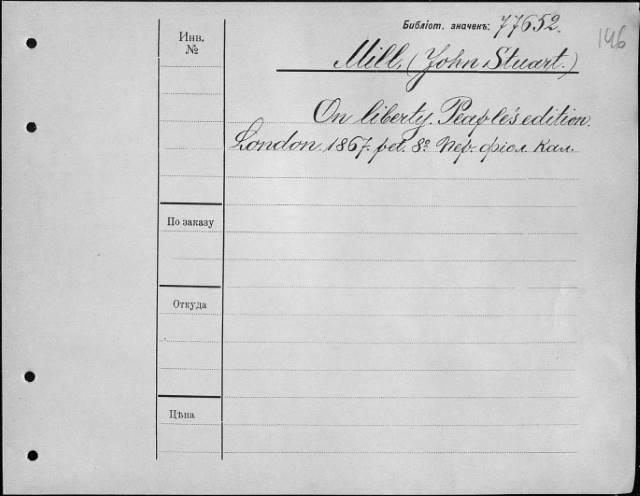 Библіот. значекъ: 77652.
146
Инв.
№
Mill, (John Stuart.)
On liberty. People's edition.
London 1867. pet. 8º Пер. фіол. кал.
По заказу
Откуда
Цѣна